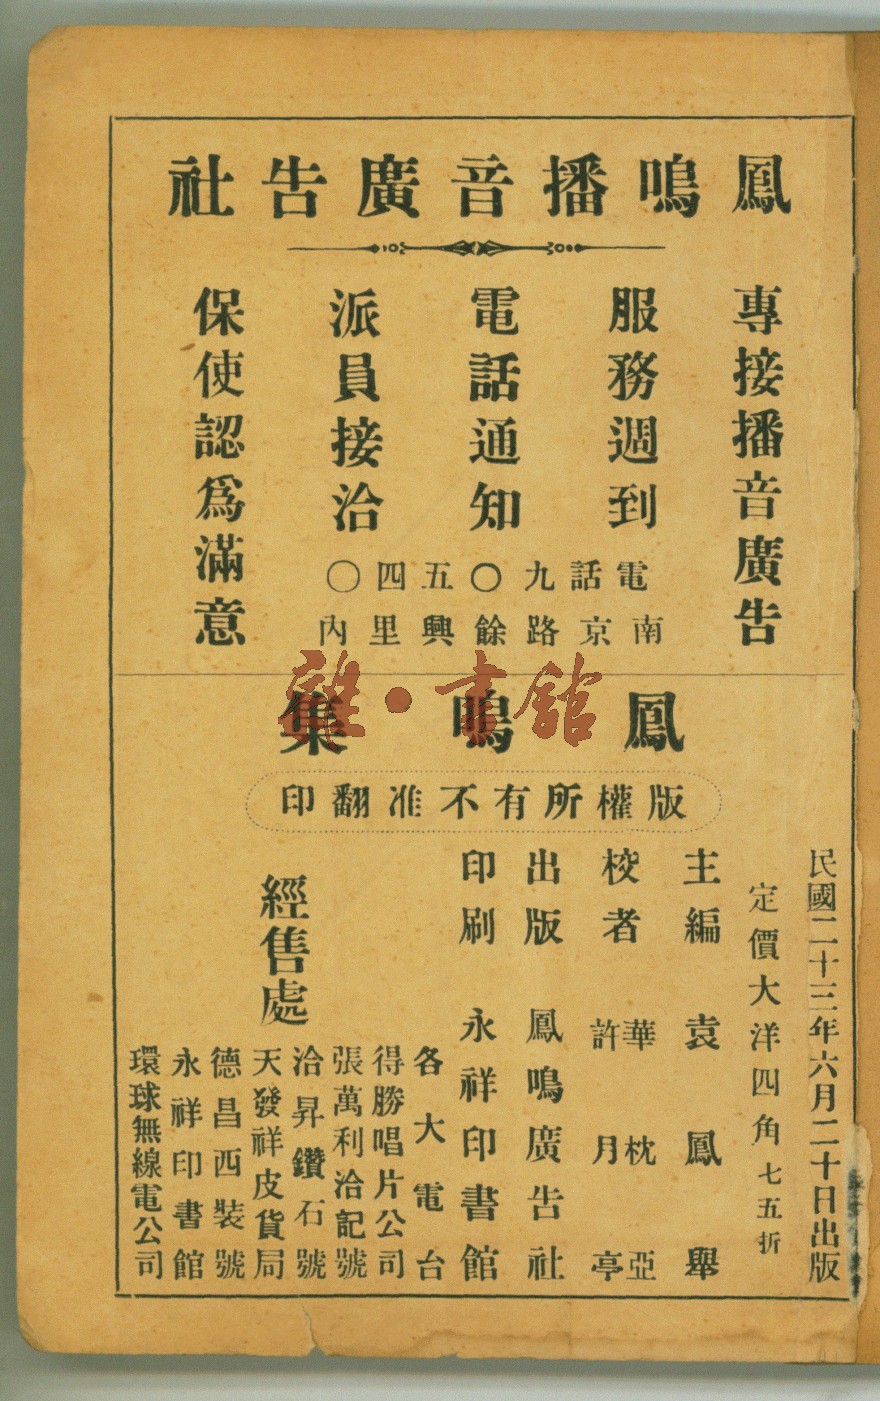 鳳鳴播音廣告社
專接播音廣告
服務週到
電話通知
派員接洽
保使認爲滿意
電話九〇五四〇
南京路餘興里內
鳳鳴集
雜·書館
版權所有不准翻印
民國二十三年六月二十日出版
定價大洋四角七五折
主編 袁鳳舉
校者 華枕亞
許月亭
出版 鳳鳴廣告社
印刷 永祥印書館
經售處
各大電台
得勝唱片公司
張萬利洽記號
洽昇鑽石號
天發祥皮貨局
德昌西裝號
永祥印書館
環球無線電公司